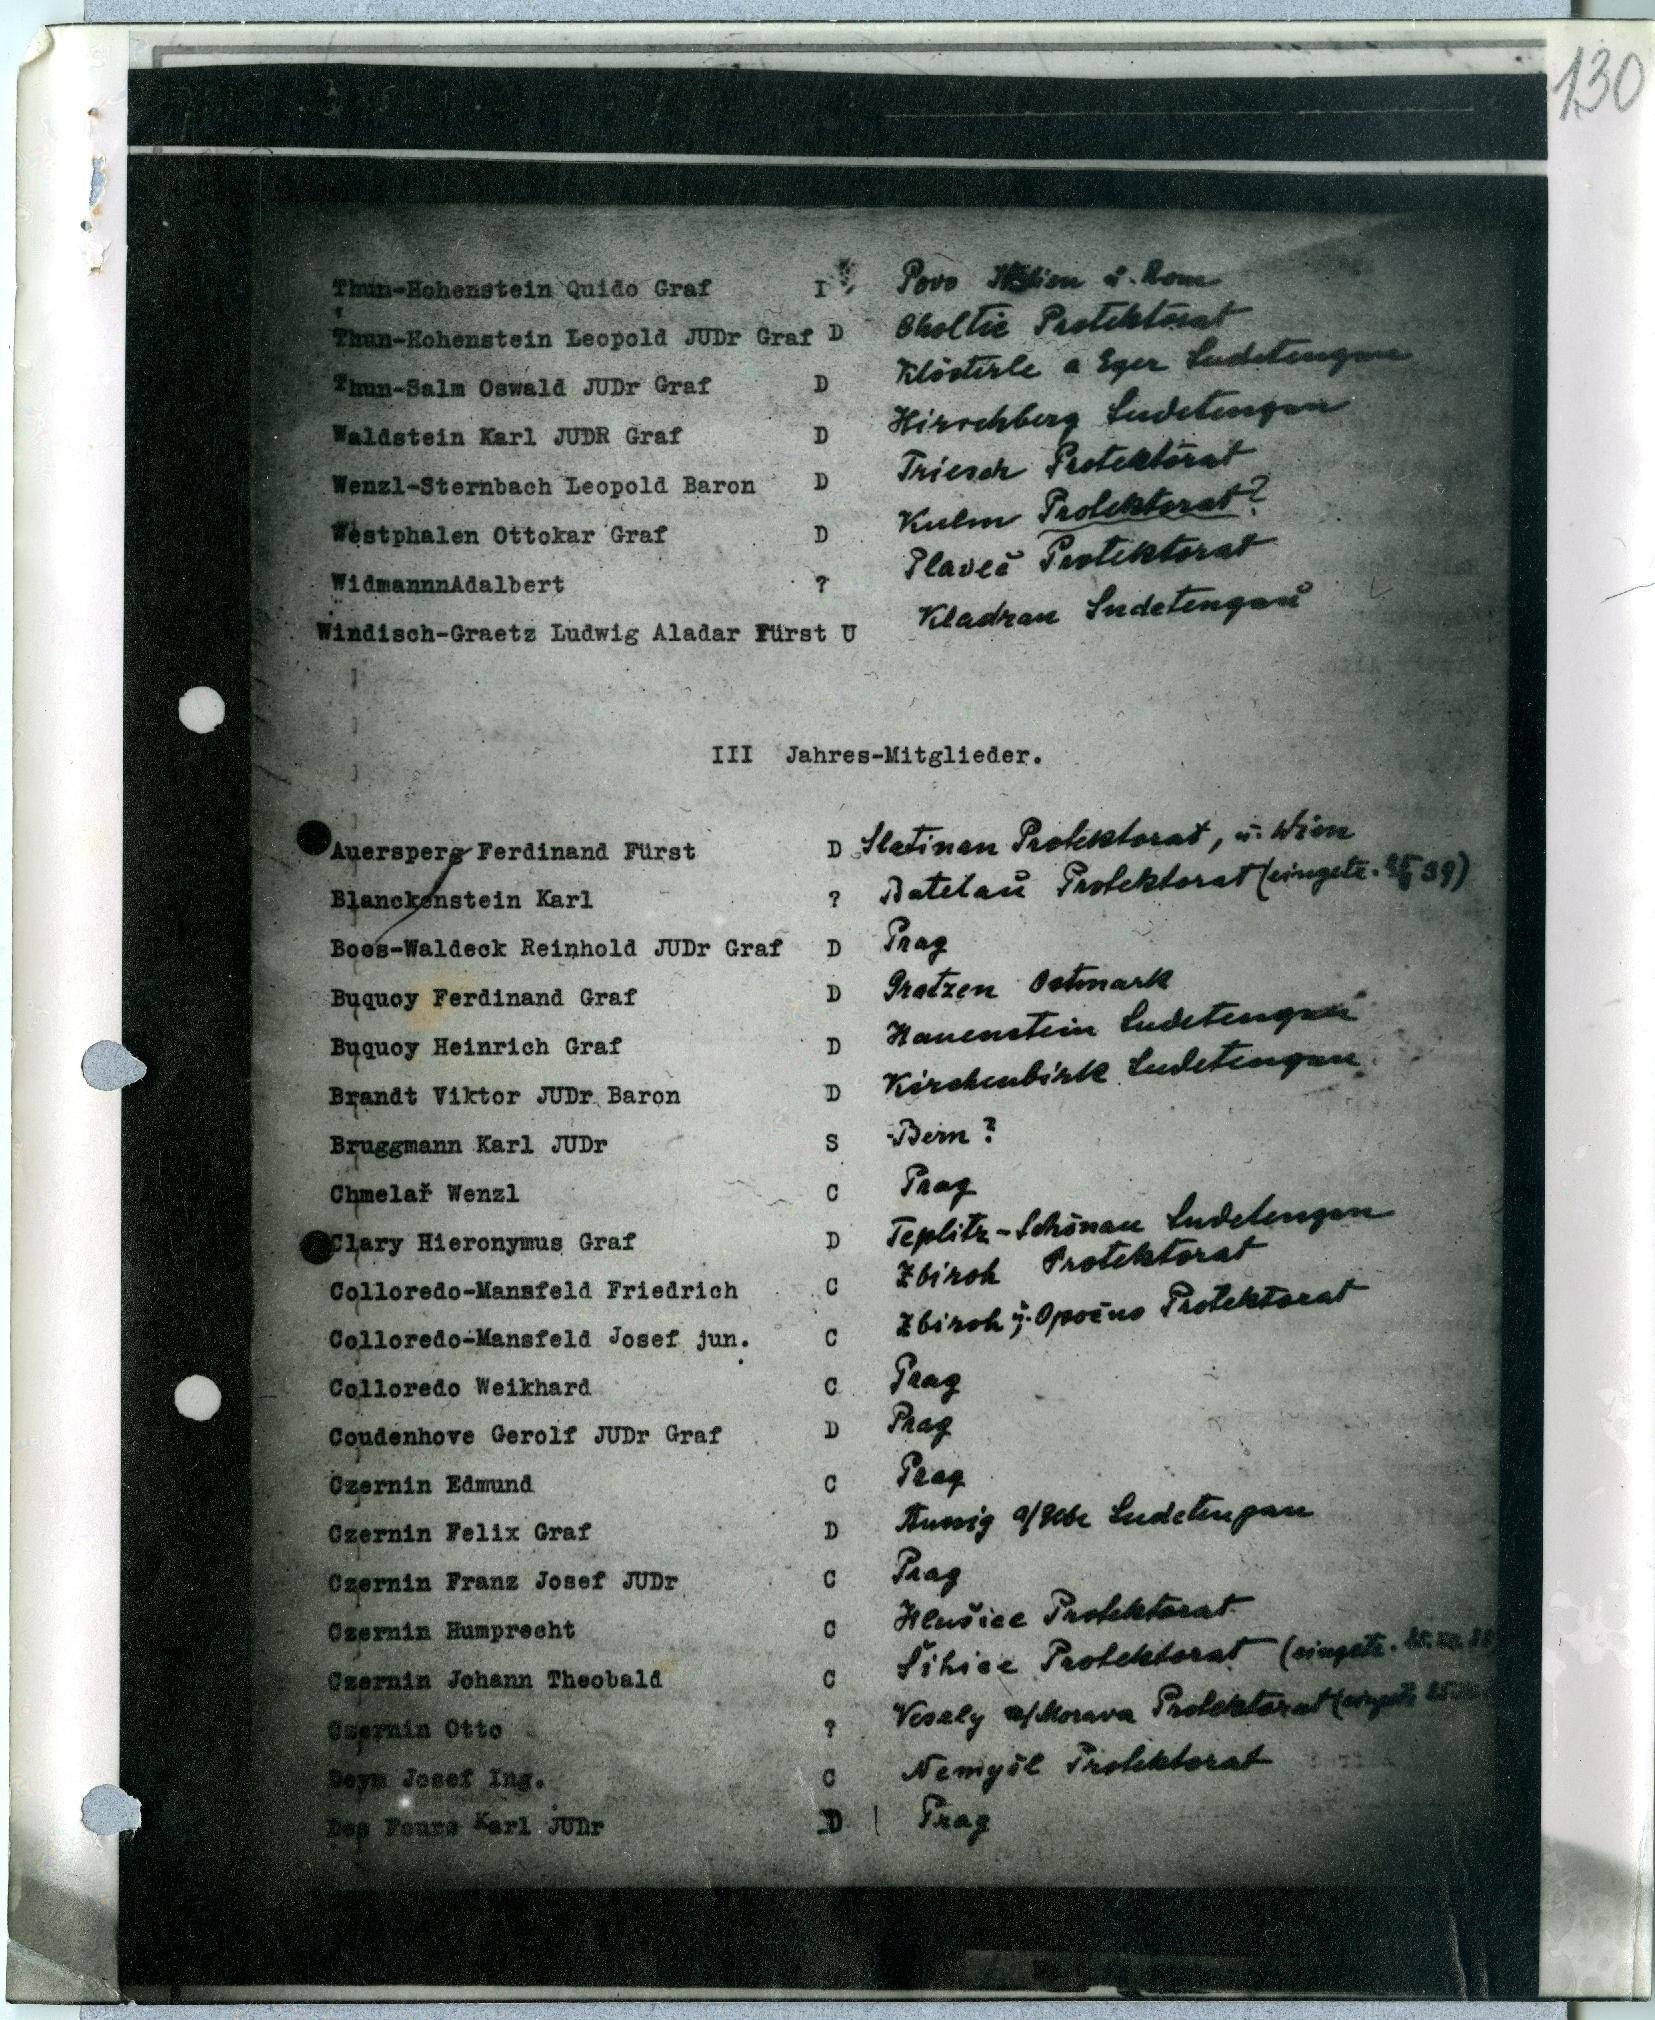 130
Thun-Hohenstein Quido Graf I Povo Italien u. Rom
Thun-Hohenstein Leopold JUDr Graf D Choltic Protektorat
Thun-Salm Oswald JUDr Graf D Klösterle a Eger Sudetengau
Waldstein Karl JUDR Graf D Hirschberg Sudetengau
Wenzl-Sternbach Leopold Baron D Triesch Protektorat
Westphalen Ottokar Graf D Kulm Protektorat?
WidmannnAdalbert ? Plaveč Protektorat
Windisch-Graetz Ludwig Aladar Fürst U Kladrau Sudetengau
III Jahres-Mitglieder.
Auersperg Ferdinand Fürst D Slatinan Protektorat, u. Wien
Blanckenstein Karl ? Batelau Protektorat (eingetr. 39)
Boos-Waldeck Reinhold JUDr Graf D Prag
Buquoy Ferdinand Graf D Gratzen Ostmark
Buquoy Heinrich Graf D Hauenstein Sudetengau
Brandt Viktor JUDr Baron D Kirchenbirk Sudetengau
Bruggmann Karl JUDr S Bern?
Chmelař Wenzl C Prag
Clary Hieronymus Graf D Teplitz-Schönau Sudetengau
Colloredo-Mansfeld Friedrich C Zbiroh Protektorat
Colloredo-Mansfeld Josef jun. C Zbiroh u. Opočno Protektorat
Colloredo Weikhard C Prag
Coudenhove Gerolf JUDr Graf D Prag
Czernin Edmund C Prag
Czernin Felix Graf D Aussig a/Elbe Sudetengau
Czernin Franz Josef JUDr C Prag
Czernin Humprecht C Hlušice Protektorat
Czernin Johann Theobald C Protektorat (eingetr.
Czernin Otto ? Vesely a/Morava Protektorat (eingetr.
Deym Josef Ing. C Nemyšl Protektorat
Des Fours Karl JUDr D Prag